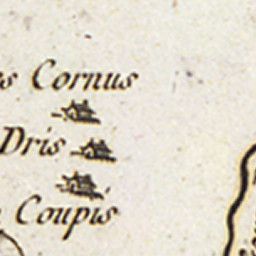 s Cornus
Dris
Coupis